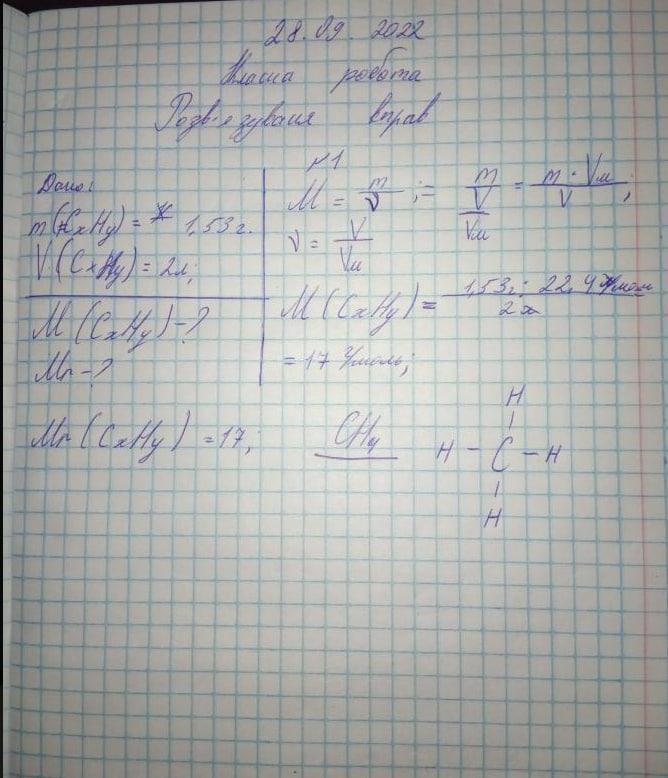 28.09.2022
Класна робота
Розв'язування вправ
№1
Дано:
m(CxHy) = 1,53 г.
V(CxHy) = 2л;
M(CxHy) - ?
Mr - ?
M = m/ν ; = m/(V/Vм) = m · Vм/V ;
ν = V/Vм
M(CxHy) = 1,53г · 22,4 л/моль / 2л
= 17 г/моль;
Mr(CxHy) = 17;
CH4
H
H - C - H
H